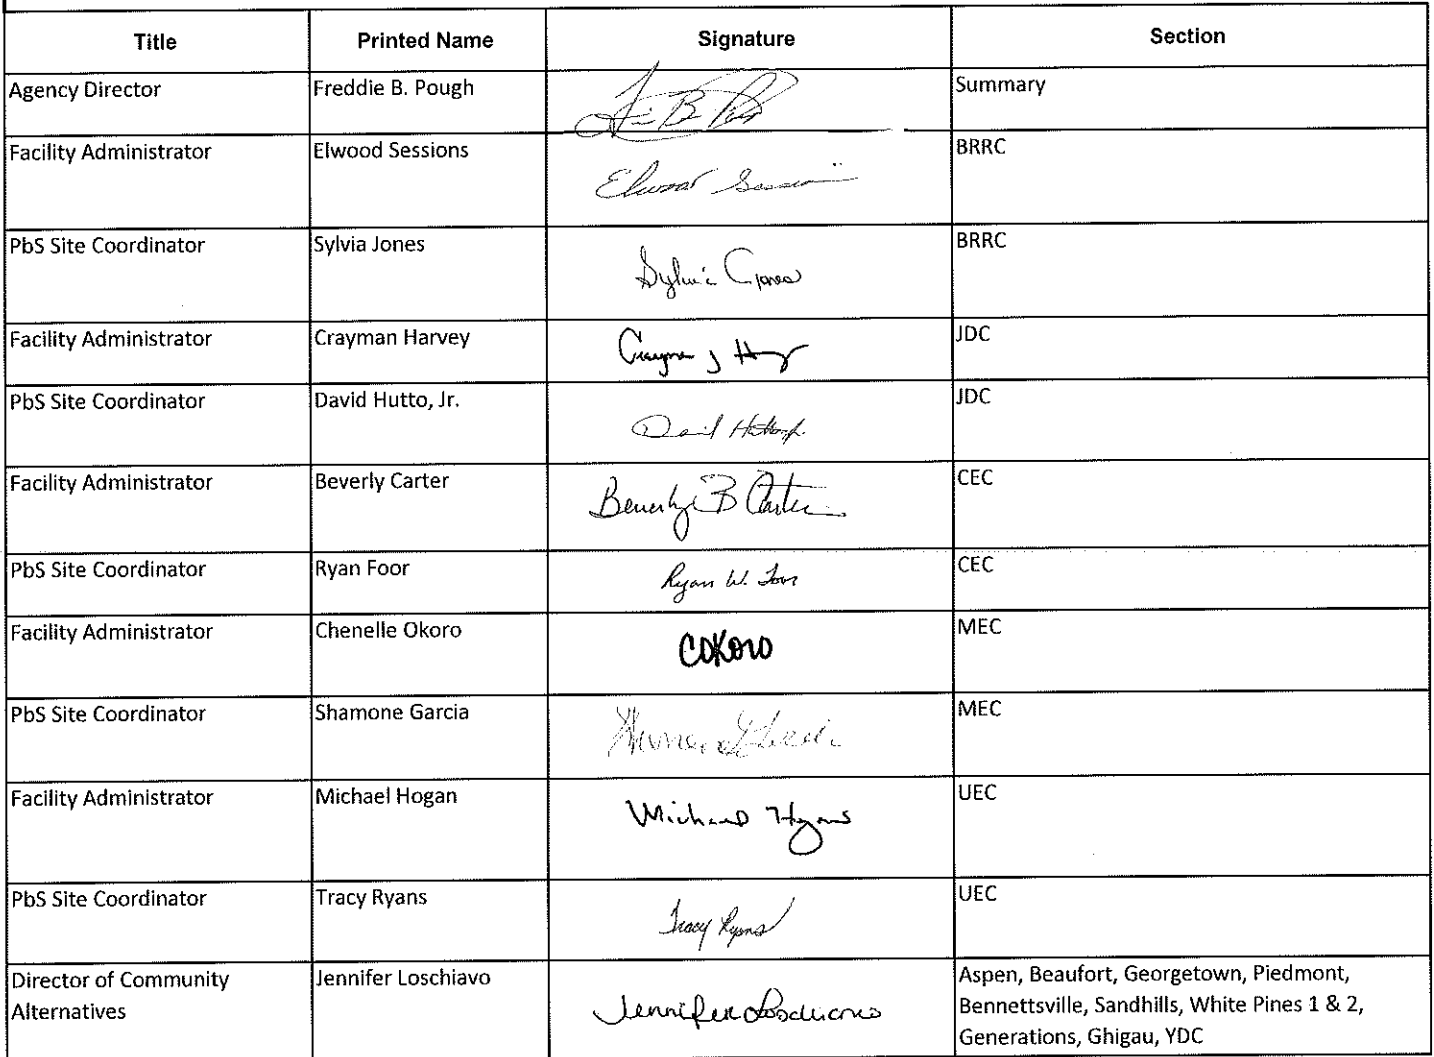 Title Printed Name Signature Section
Agency Director Freddie B. Pough Summary
Facility Administrator Elwood Sessions Elwood Sessions BRRC
PbS Site Coordinator Sylvia Jones Sylvia Jones BRRC
Facility Administrator Crayman Harvey Crayman J Harvey JDC
PbS Site Coordinator David Hutto, Jr. David Hutto Jr. JDC
Facility Administrator Beverly Carter Beverly B Carter CEC
PbS Site Coordinator Ryan Foor Ryan W. Foor CEC
Facility Administrator Chenelle Okoro COKoro MEC
PbS Site Coordinator Shamone Garcia MEC
Facility Administrator Michael Hogan Michael Hogan UEC
PbS Site Coordinator Tracy Ryans Tracy Ryans UEC
Director of Community Jennifer Loschiavo Jennifer Loschiavo Aspen, Beaufort, Georgetown, Piedmont,
Alternatives Bennettsville, Sandhills, White Pines 1 & 2,
Generations, Ghigau, YDC